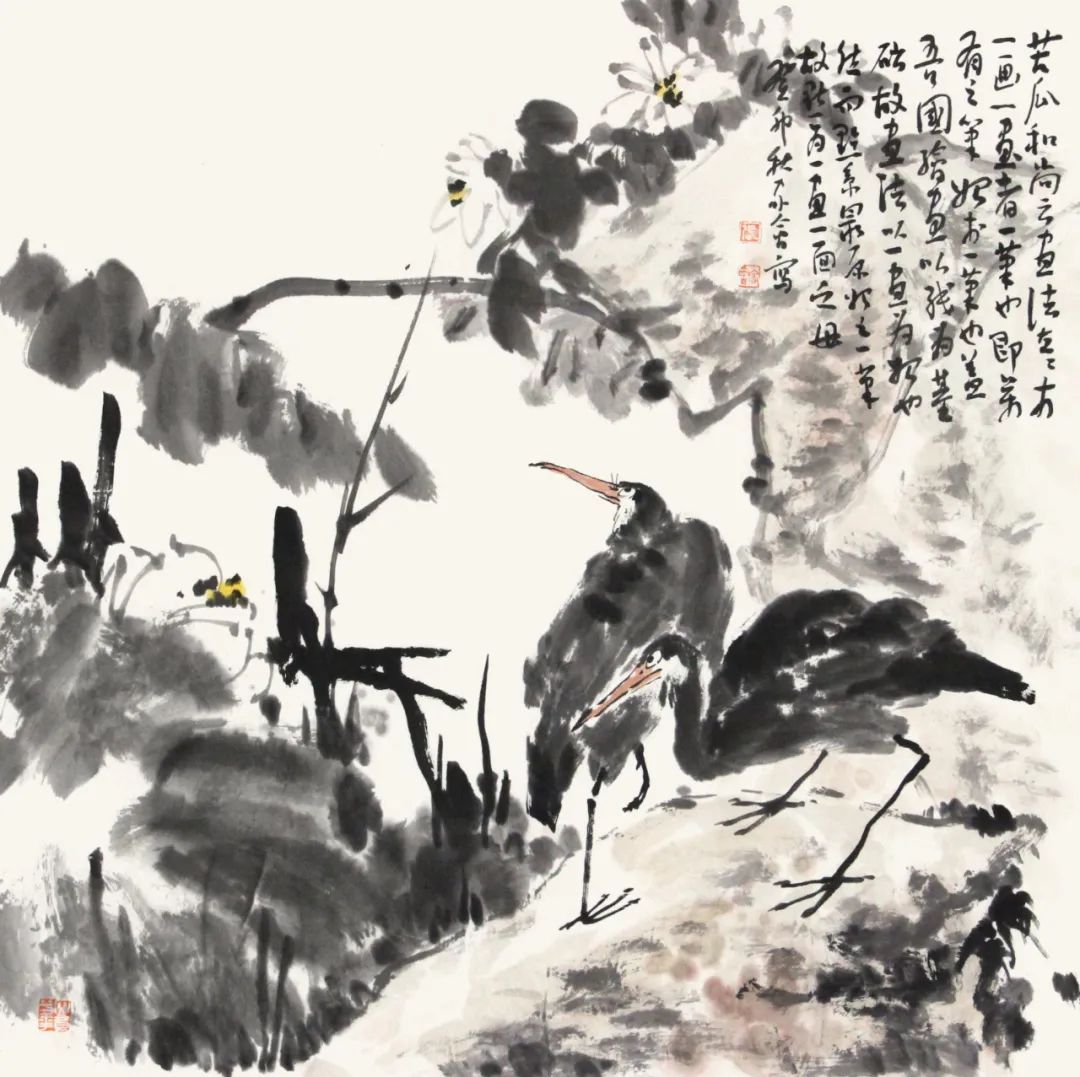 苦瓜和尚云画法立于
一画一画者一笔也即万
有之笔始于一笔也盖
吾国绘画以线为基
础故画法以一画为始也
然而点系最原始之一笔
故点有一画一面之母
癸卯秋永
写